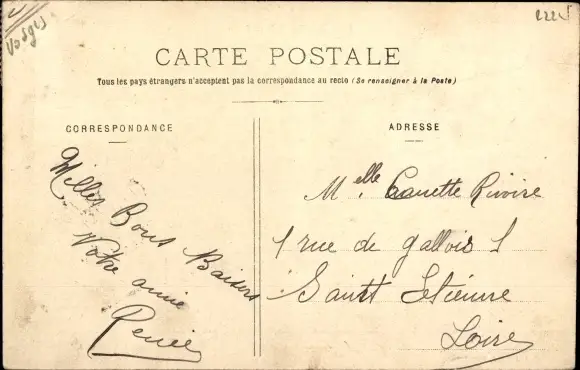 Vosges
2225
CARTE POSTALE
Tous les pays étrangers n'acceptent pas la correspondance au recto (Se renseigner à la Poste)
CORRESPONDANCE
Milles Bons Baisers
Votre amie
Renée
ADRESSE
Melle Canette Rivoire
1 rue de gallois 1
Saint Etienne
Loire